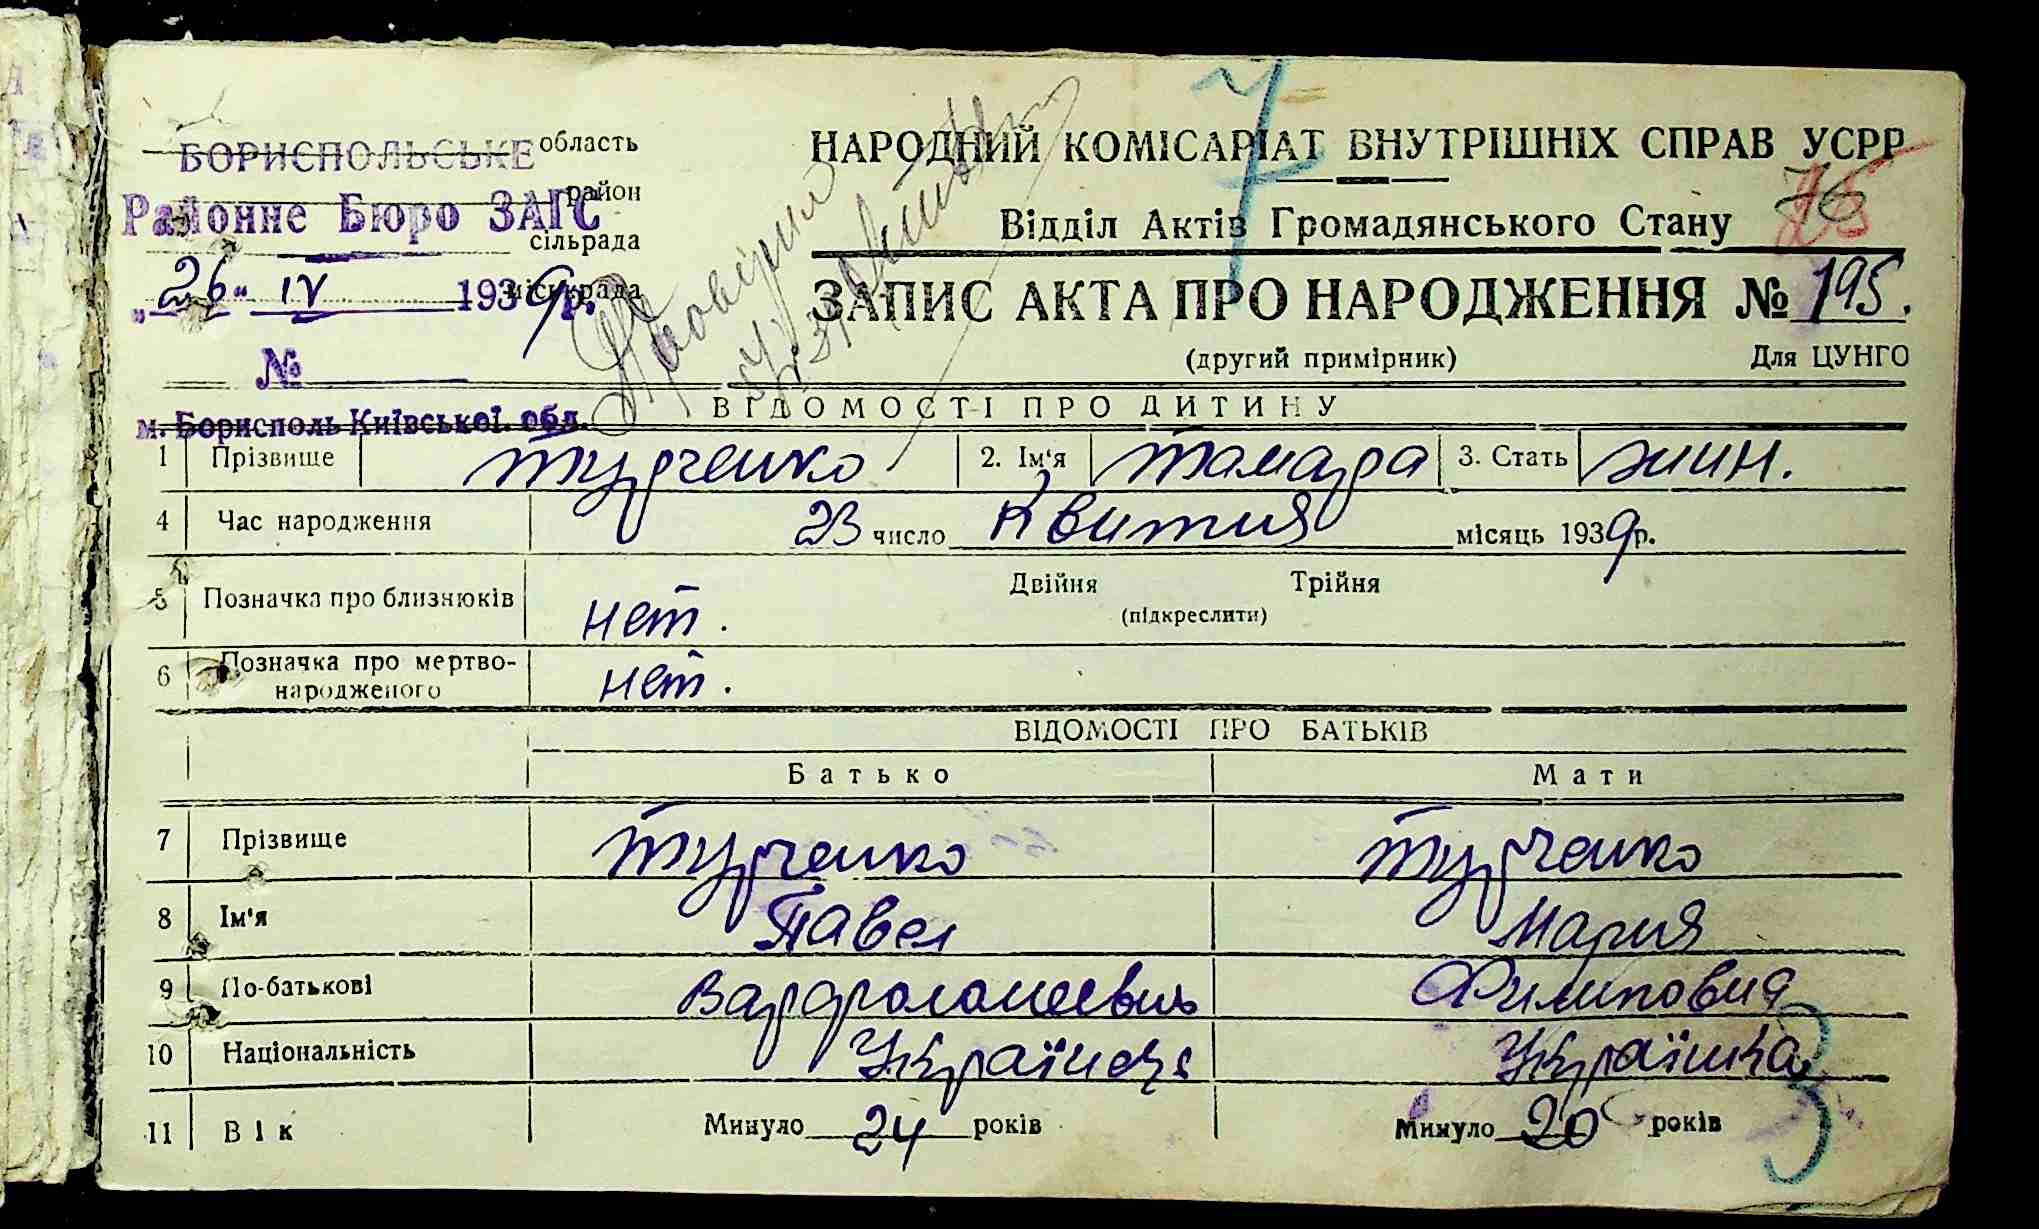 БОРИСПОЛЬСЬКЕ область
район
Районне Бюро ЗАГС
сільрада
„26" IV 1939р. міськрада
№
м. Бориспіль Київської. обл.
7
НАРОДНИЙ КОМІСАРІАТ ВНУТРІШНІХ СПРАВ УСРР
Відділ Актів Громадянського Стану 76
ЗАПИС АКТА ПРО НАРОДЖЕННЯ № 195.
(другий примірник) Для ЦУНГО
ВІДОМОСТІ ПРО ДИТИНУ
1 Прізвище Турченко 2. Ім'я Тамара 3. Стать жин.
4 Час народження 23 число Квитня місяць 1939р.
5 Позначка про близнюків нет. Двійня Трійня
(підкреслити)
6 Позначка про мертво-
народженого нет.
ВІДОМОСТІ ПРО БАТЬКІВ
Батько Мати
7 Прізвище Турченко Турченко
8 Ім'я Павел Мария
9 По-батькові Варфоломеевич Филиповна
10 Національність Українець Українка
11 Вік Минуло 24 років Минуло 20 років
3